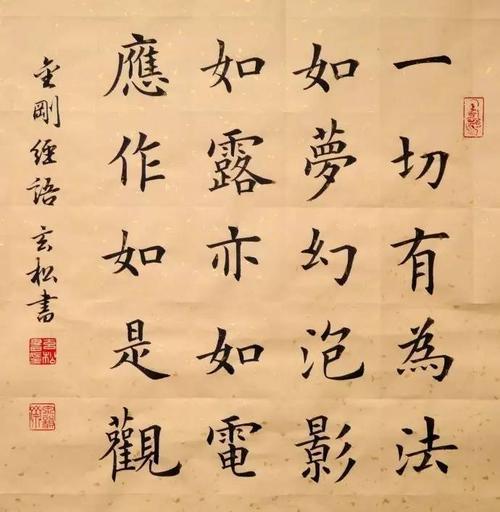 一切有為法
如夢幻泡影
如露亦如電
應作如是觀
金剛經語玄松書